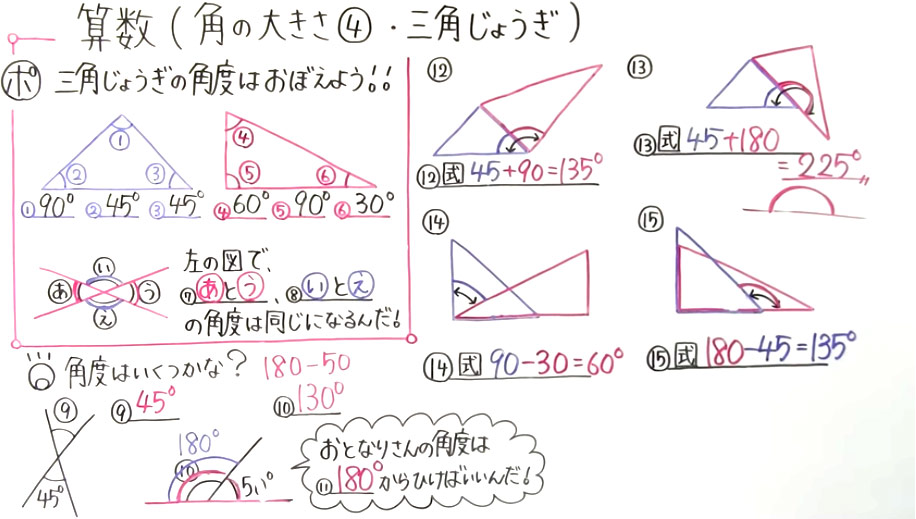 算数(角の大きさ④・三角じょうぎ)
ポ 三角じょうぎの角度はおぼえよう!!
① ② ③
④ ⑤ ⑥
①90° ②45° ③45° ④60° ⑤90° ⑥30°
あ い う え
左の図で、
⑦あとう、⑧いとえ
の角度は同じになるんだ!
角度はいくつかな? 180-50
⑨ ⑨45° ⑩130°
45°
180° ⑩ 50°
おとなりさんの角度は
⑪180°からひけばいいんだ!
⑫
⑫式 45+90=135°
⑬
⑬式 45+180
=225°〃
⑭
⑭式 90-30=60°
⑮
⑮式 180-45=135°